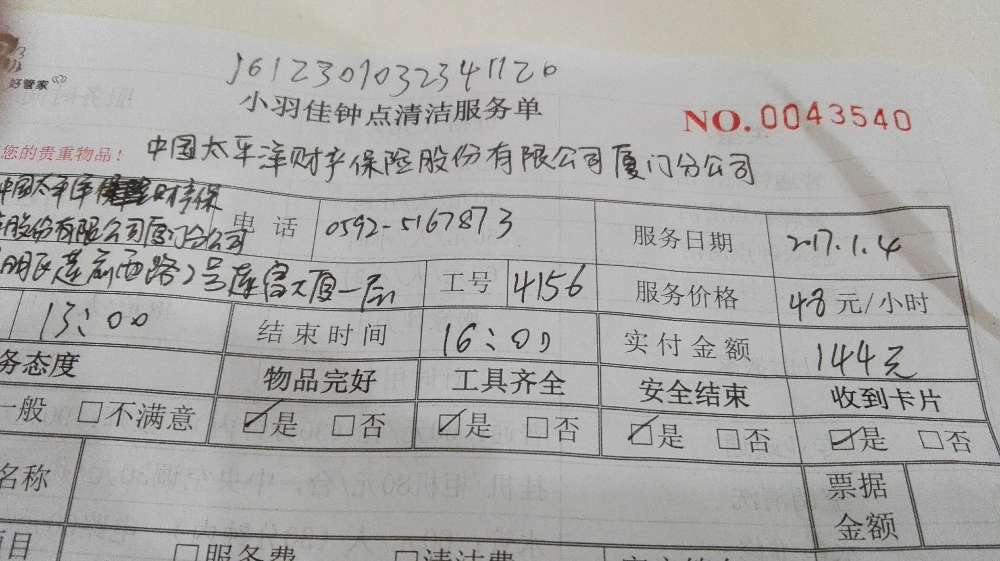 好管家
1612301032341120
小羽佳钟点清洁服务单
NO. 0043540
您的贵重物品！ 中国太平洋财产保险股份有限公司厦门分公司
中国太平洋 财产保
股份有限公司厦门分公司
电话 0592-5167873 服务日期 2017.1.4
莲前西路2号 大厦一层 工号 4156 服务价格 48元/小时
13:00 结束时间 16:00 实付金额 144元
务态度 物品完好 工具齐全 安全结束 收到卡片
一般 □不满意 ☑是 □否 ☑是 □否 ☑是 □否 ☑是 □否
名称 票据
金额
项目 □服务费 □清洁费